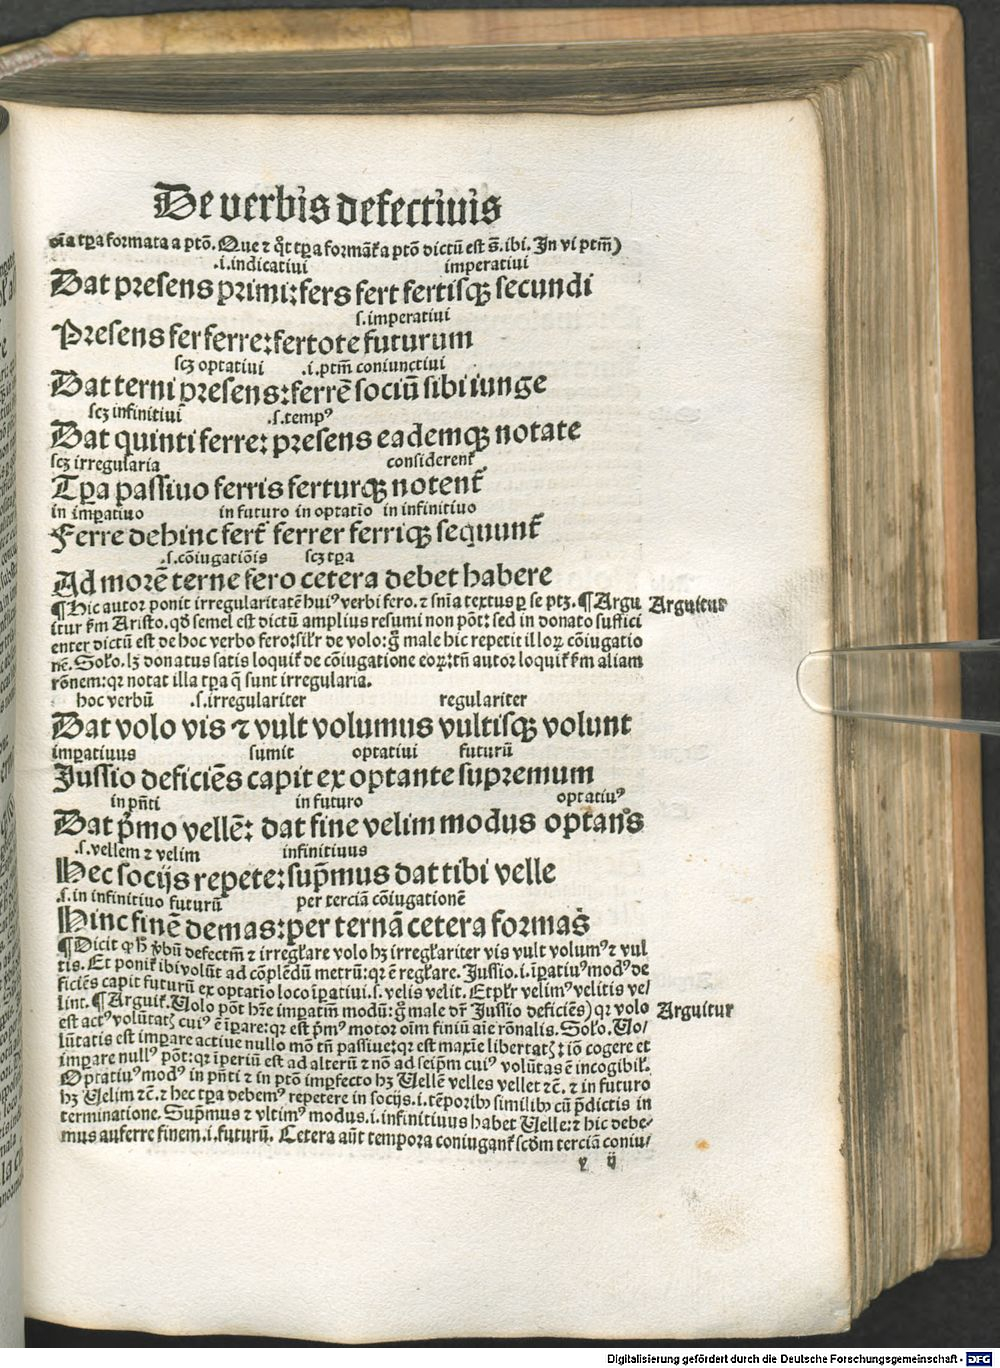 De verbis defectiuis
oīa tꝑa formata a ptō. Que ⁊ q̄t tꝑa formāt᷑ a ptō dictū est s̄. ibi. In vi ptm̄)
.i.indicatiui imperatiui
Dat presens primi: fers fert fertisqꝫ secundi
s.imperatiui
Presens fer ferre: fertote futurum
scꝫ optatiui .i.ptm̄ coniunctiui
Dat terni presens: ferrē sociū sibi iunge
scꝫ infinitiui .s.tempꝰ
Dat quinti ferre: presens eademqꝫ notate
scꝫ irregularia considerent᷑
Tꝑa passiuo ferris ferturqꝫ notent᷑
in imꝑatiuo in futuro in optatīo in infinitiuo
Ferre dehinc fert᷑ ferrer ferriqꝫ sequunt᷑
.s.cōiugatiōis scꝫ tꝑa
Ad morē terne fero cetera debet habere
¶ Hic autor ponit irregularitatē huiꝰ verbi fero. ⁊ snīa textus ꝑ se ptꝫ. ¶ Argu Arguitur
itur ẜm Aristo. qđ semel est dictū amplius resumi non pōt: sed in donato suffici
enter dictū est de hoc verbo fero: sil'r de volo: g̊ male hic repetit illoꝝ cōiugatio
nē. Sol'o. lꝫ donatus satis loquit᷑ de cōiugatione eoꝝ: tn̄ autor loquit᷑ ẜm aliam
rōnem: qꝛ notat illa tꝑa q̄ sunt irregularia.
hoc verbū .s.irregulariter regulariter
Dat volo vis ⁊ vult volumus vultisqꝫ volunt
imꝑatiuus sumit optatiui futurū
Jussio deficiēs capit ex optante supremum
in pn̄ti in futuro optatiuꝰ
Dat p̄mo vellē: dat fine velim modus optans
.s.vellem ⁊ velim infinitiuus
Hec socijs repete: sup̄mus dat tibi velle
.s.in infinitiuo futurū per terciā cōiugationē
Hinc finē demas: per ternā cetera formas
¶ Dicit ꝙ h̄ v̄bū defectm̄ ⁊ irregl'are volo hꝫ irregl'ariter vis vult volumꝰ ⁊ vul
tis. Et ponit᷑ ibi volūt ad cōplēdū metrū: qꝛ ē regl'are. Jussio .i. īꝑatiuꝰ modꝰ de
ficiēs capit futurū ex optatīo loco īꝑatiui .s. velis velit. Et pl'r velimꝰ velitis vel
lint. ¶ Arguit᷑. Volo pōt hr̄e imꝑatm̄ modū: g̊ male dr̄ Jussio deficiēs) qꝛ volo Arguitur
est actꝰ volūtatꝭ cuiꝰ ē īꝑare: qꝛ est p̄mꝰ motor oīm finiū aīe rōnalis. Sol'o. Vo/
lūtatis est imꝑare actiue nullo mō tn̄ passiue: qꝛ est maxīe libertatꝭ: iō cogere et
imꝑare nullꝰ pōt: qꝛ īꝑeriū est ad alterū ⁊ nō ad seip̄m cuiꝰ volūtas ē incogibil'.
Optatiuꝰ modꝰ in pn̄ti ⁊ in ptō imꝑfecto hꝫ Vellē velles vellet ⁊c̄. ⁊ in futuro
hꝫ Velim ⁊c̄. ⁊ hec tꝑa debemꝰ repetere in socijs .i. tēporibꝰ similibꝰ cū p̄dictis in
terminatione. Sup̄mus ⁊ vltimꝰ modus .i. infinitiuus habet Velle: ⁊ hic debe/
mus auferre finem .i. futurū. Cetera aūt tempora coniugant᷑ scđm terciā coniu/
y ij
Digitalisierung gefördert durch die Deutsche Forschungsgemeinschaft - DFG